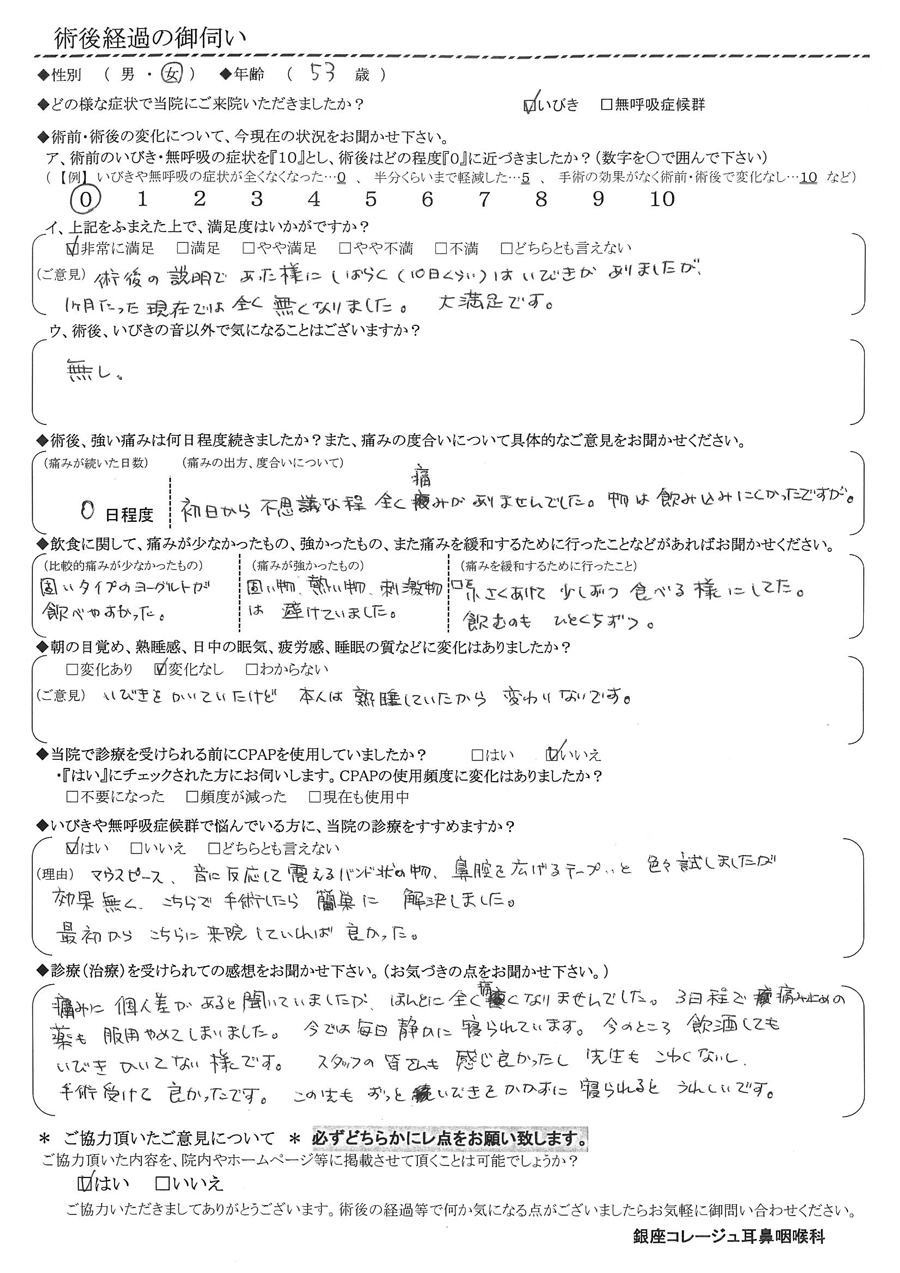 術後経過の御伺い
◆性別 （ 男 ・ 女 ） ◆年齢 （ 53 歳 ）
◆どの様な症状で当院にご来院いただきましたか？ ☑いびき □無呼吸症候群
◆術前・術後の変化について、今現在の状況をお聞かせ下さい。
ア、術前のいびき・無呼吸の症状を『10』とし、術後はどの程度『0』に近づきましたか？（数字を〇で囲んで下さい）
（【例】いびきや無呼吸の症状が全くなくなった…0 、 半分くらいまで軽減した…5 、 手術の効果がなく術前・術後で変化なし…10 など）
0 1 2 3 4 5 6 7 8 9 10
イ、上記をふまえた上で、満足度はいかがですか？
☑非常に満足 □満足 □やや満足 □やや不満 □不満 □どちらとも言えない
（ご意見） 術後の説明であった様にしばらく（10日くらい）はいびきがありましたが、
1ヶ月たった現在では全く無くなりました。 大満足です。
ウ、術後、いびきの音以外で気になることはございますか？
無し。
◆術後、強い痛みは何日程度続きましたか？また、痛みの度合いについて具体的なご意見をお聞かせください。
（痛みが続いた日数） （痛みの出方、度合いについて）
0 日程度 初日から不思議な程全く痛みがありませんでした。物は飲み込みにくかったですが。
◆飲食に関して、痛みが少なかったもの、強かったもの、また痛みを緩和するために行ったことなどがあればお聞かせください。
（比較的痛みが少なかったもの） （痛みが強かったもの） （痛みを緩和するために行ったこと）
固いタイプのヨーグルトが 固い物、熱い物、刺激物 口を小さくあけて少しずつ食べる様にしてた。
飲べやすかった。 は避けていました。 飲むのもひとくちずつ。
◆朝の目覚め、熟睡感、日中の眠気、疲労感、睡眠の質などに変化はありましたか？
□変化あり ☑変化なし □わからない
（ご意見） いびきをかいていたけど 本人は熟睡していたから変わりないです。
◆当院で診療を受けられる前にCPAPを使用していましたか？ □はい ☑いいえ
・『はい』にチェックされた方にお伺いします。CPAPの使用頻度に変化はありましたか？
□不要になった □頻度が減った □現在も使用中
◆いびきや無呼吸症候群で悩んでいる方に、当院の診療をすすめますか？
☑はい □いいえ □どちらとも言えない
（理由） マウスピース、音に反応して震えるバンド状の物、鼻腔を広げるテープ…と色々試しましたが
効果無く、こちらで手術したら簡単に解決しました。
最初からこちらに来院していれば良かった。
◆診療（治療）を受けられての感想をお聞かせ下さい。（お気づきの点をお聞かせ下さい。）
痛みに個人差があると聞いていましたが、ほんとに全く痛くなりませんでした。3日程で痛み止めの
薬も服用やめてしまいました。今では毎日静かに寝られています。今のところ飲酒しても
いびきかいてない様です。 スタッフの皆さんも感じ良かったし先生もこわくないし、
手術受けて良かったです。この先もずっといびきをかかずに寝られるとうれしいです。
＊ ご協力頂いたご意見について ＊ 必ずどちらかにレ点をお願い致します。
ご協力頂いた内容を、院内やホームページ等に掲載させて頂くことは可能でしょうか？
☑はい □いいえ
ご協力いただきましてありがとうございます。術後の経過等で何か気になる点がございましたらお気軽に御問い合わせください。
銀座コレージュ耳鼻咽喉科